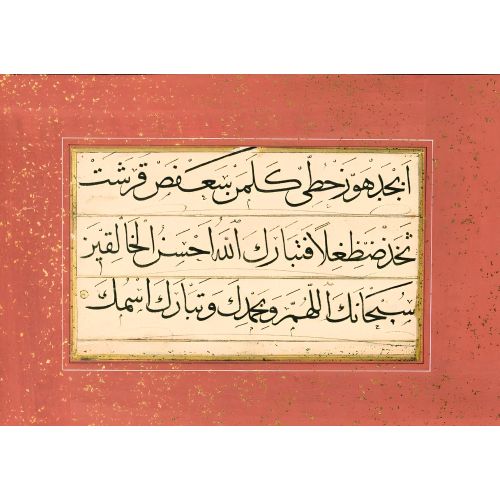 ابجد هوز حطي كلمن سعفص قرشت
ثخذ ضظغلا فتبارك الله احسن الخالقين
سبحانك اللهم وبحمدك وتبارك اسمك